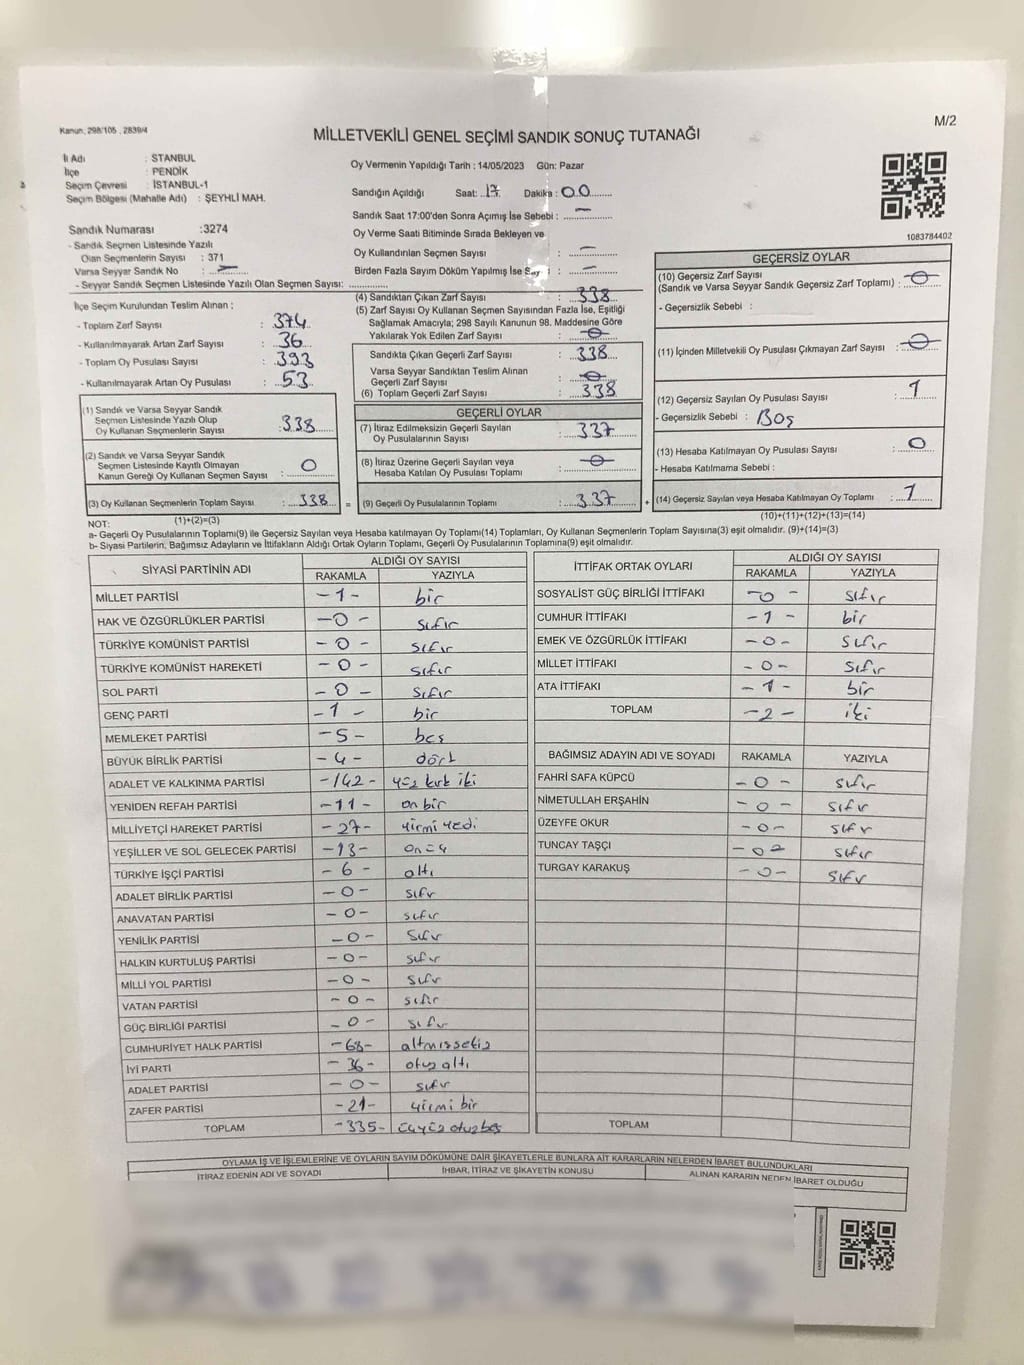 Kanun: 298/105 , 2839/4
M/2
MİLLETVEKİLİ GENEL SEÇİMİ SANDIK SONUÇ TUTANAĞI
İl Adı : STANBUL
İlçe : PENDİK
Seçim Çevresi : İSTANBUL-1
Seçim Bölgesi (Mahalle Adı) : ŞEYHLİ MAH.
Oy Vermenin Yapıldığı Tarih : 14/05/2023 Gün: Pazar
Sandığın Açıldığı Saat: 17 Dakika : 00
Sandık Saat 17:00'den Sonra Açımış İse Sebebi : —
Oy Verme Saati Bitiminde Sırada Bekleyen ve
Oy Kullandırılan Seçmen Sayısı : —
Birden Fazla Sayım Döküm Yapılmış İse Say : —
1083784402
Sandık Numarası :3274
- Sandık Seçmen Listesinde Yazılı
Olan Seçmenlerin Sayısı : 371
Varsa Seyyar Sandık No : —
- Seyyar Sandık Seçmen Listesinde Yazılı Olan Seçmen Sayısı:
İlçe Seçim Kurulundan Teslim Alınan ;
- Toplam Zarf Sayısı : 374
- Kullanılmayarak Artan Zarf Sayısı : 36
- Toplam Oy Pusulası Sayısı : 393
- Kullanılmayarak Artan Oy Pusulası : 53
(1) Sandık ve Varsa Seyyar Sandık
Seçmen Listesinde Yazılı Olup
Oy Kullanan Seçmenlerin Sayısı : 338
(2) Sandık ve Varsa Seyyar Sandık
Seçmen Listesinde Kayıtlı Olmayan
Kanun Gereği Oy Kullanan Seçmen Sayısı : 0
(3) Oy Kullanan Seçmenlerin Toplam Sayısı : 338 =
(1)+(2)=(3)
(4) Sandıktan Çıkan Zarf Sayısı : 338
(5) Zarf Sayısı Oy Kullanan Seçmen Sayısından Fazla İse, Eşitliği
Sağlamak Amacıyla; 298 Sayılı Kanunun 98. Maddesine Göre
Yakılarak Yok Edilen Zarf Sayısı : 0
Sandıkta Çıkan Geçerli Zarf Sayısı : 338
Varsa Seyyar Sandıktan Teslim Alınan
Geçerli Zarf Sayısı : 0
(6) Toplam Geçerli Zarf Sayısı : 338
GEÇERLİ OYLAR
(7) İtiraz Edilmeksizin Geçerli Sayılan
Oy Pusulalarının Sayısı : 337
(8) İtiraz Üzerine Geçerli Sayılan veya
Hesaba Katılan Oy Pusulası Toplamı : 0
(9) Geçerli Oy Pusulalarının Toplamı : 337 +
GEÇERSİZ OYLAR
(10) Geçersiz Zarf Sayısı
(Sandık ve Varsa Seyyar Sandık Geçersiz Zarf Toplamı) : 0
- Geçersizlik Sebebi :
(11) İçinden Milletvekili Oy Pusulası Çıkmayan Zarf Sayısı : 0
(12) Geçersiz Sayılan Oy Pusulası Sayısı : 1
- Geçersizlik Sebebi : Boş
(13) Hesaba Katılmayan Oy Pusulası Sayısı : 0
- Hesaba Katılmama Sebebi :
(14) Geçersiz Sayılan veya Hesaba Katılmayan Oy Toplamı : 1
(10)+(11)+(12)+(13)=(14)
NOT:
a- Geçerli Oy Pusulalarının Toplamı(9) ile Geçersiz Sayılan veya Hesaba katılmayan Oy Toplamı(14) Toplamları, Oy Kullanan Seçmenlerin Toplam Sayısına(3) eşit olmalıdır. (9)+(14)=(3)
b- Siyasi Partilerin, Bağımsız Adayların ve İttifakların Aldığı Ortak Oyların Toplamı, Geçerli Oy Pusulalarının Toplamına(9) eşit olmalıdır.
SİYASİ PARTİNİN ADI ALDIĞI OY SAYISI
RAKAMLA YAZIYLA
MİLLET PARTİSİ -1- bir
HAK VE ÖZGÜRLÜKLER PARTİSİ -0- sıfır
TÜRKİYE KOMÜNİST PARTİSİ -0- sıfır
TÜRKİYE KOMÜNİST HAREKETİ -0- sıfır
SOL PARTİ -0- sıfır
GENÇ PARTİ -1- bir
MEMLEKET PARTİSİ -5- beş
BÜYÜK BİRLİK PARTİSİ -4- dört
ADALET VE KALKINMA PARTİSİ -142- yüz kırk iki
YENİDEN REFAH PARTİSİ -11- on bir
MİLLİYETÇİ HAREKET PARTİSİ -27- yirmi yedi
YEŞİLLER VE SOL GELECEK PARTİSİ -13- onüç
TÜRKİYE İŞÇİ PARTİSİ -6- altı
ADALET BİRLİK PARTİSİ -0- sıfır
ANAVATAN PARTİSİ -0- sıfır
YENİLİK PARTİSİ -0- sıfır
HALKIN KURTULUŞ PARTİSİ -0- sıfır
MİLLİ YOL PARTİSİ -0- sıfır
VATAN PARTİSİ -0- sıfır
GÜÇ BİRLİĞİ PARTİSİ -0- sıfır
CUMHURİYET HALK PARTİSİ -68- altmışsekiz
İYİ PARTİ -36- otuz altı
ADALET PARTİSİ -0- sıfır
ZAFER PARTİSİ -21- yirmi bir
TOPLAM -335- üçyüz otuzbeş
İTTİFAK ORTAK OYLARI ALDIĞI OY SAYISI
RAKAMLA YAZIYLA
SOSYALİST GÜÇ BİRLİĞİ İTTİFAKI -0- sıfır
CUMHUR İTTİFAKI -1- bir
EMEK VE ÖZGÜRLÜK İTTİFAKI -0- sıfır
MİLLET İTTİFAKI -0- sıfır
ATA İTTİFAKI -1- bir
TOPLAM -2- iki
BAĞIMSIZ ADAYIN ADI VE SOYADI RAKAMLA YAZIYLA
FAHRİ SAFA KÜPCÜ -0- sıfır
NİMETULLAH ERŞAHİN -0- sıfır
ÜZEYFE OKUR -0- sıfır
TUNCAY TAŞÇI -0- sıfır
TURGAY KARAKUŞ -0- sıfır
TOPLAM
OYLAMA İŞ VE İŞLEMLERİNE VE OYLARIN SAYIM DÖKÜMÜNE DAİR ŞİKAYETLERLE BUNLARA AİT KARARLARIN NELERDEN İBARET BULUNDUKLARI
İTİRAZ EDENİN ADI VE SOYADI İHBAR, İTİRAZ VE ŞİKAYETİN KONUSU ALINAN KARARIN NEDEN İBARET OLDUĞU